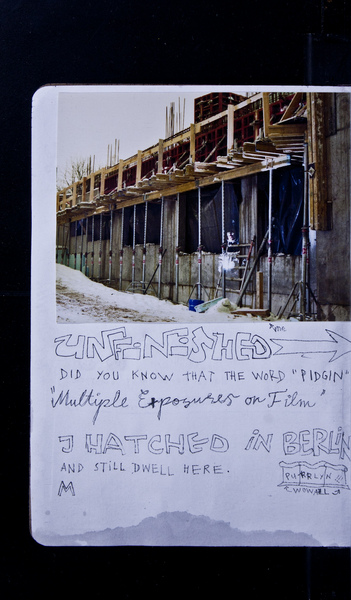 UNFINISHED
DID YOU KNOW THAT THE WORD "PIDGIN"
"Multiple Exposures on Film"
I HATCHED iN BERLiN
AND STiLL DWELL HERE.
PURRLYN
M